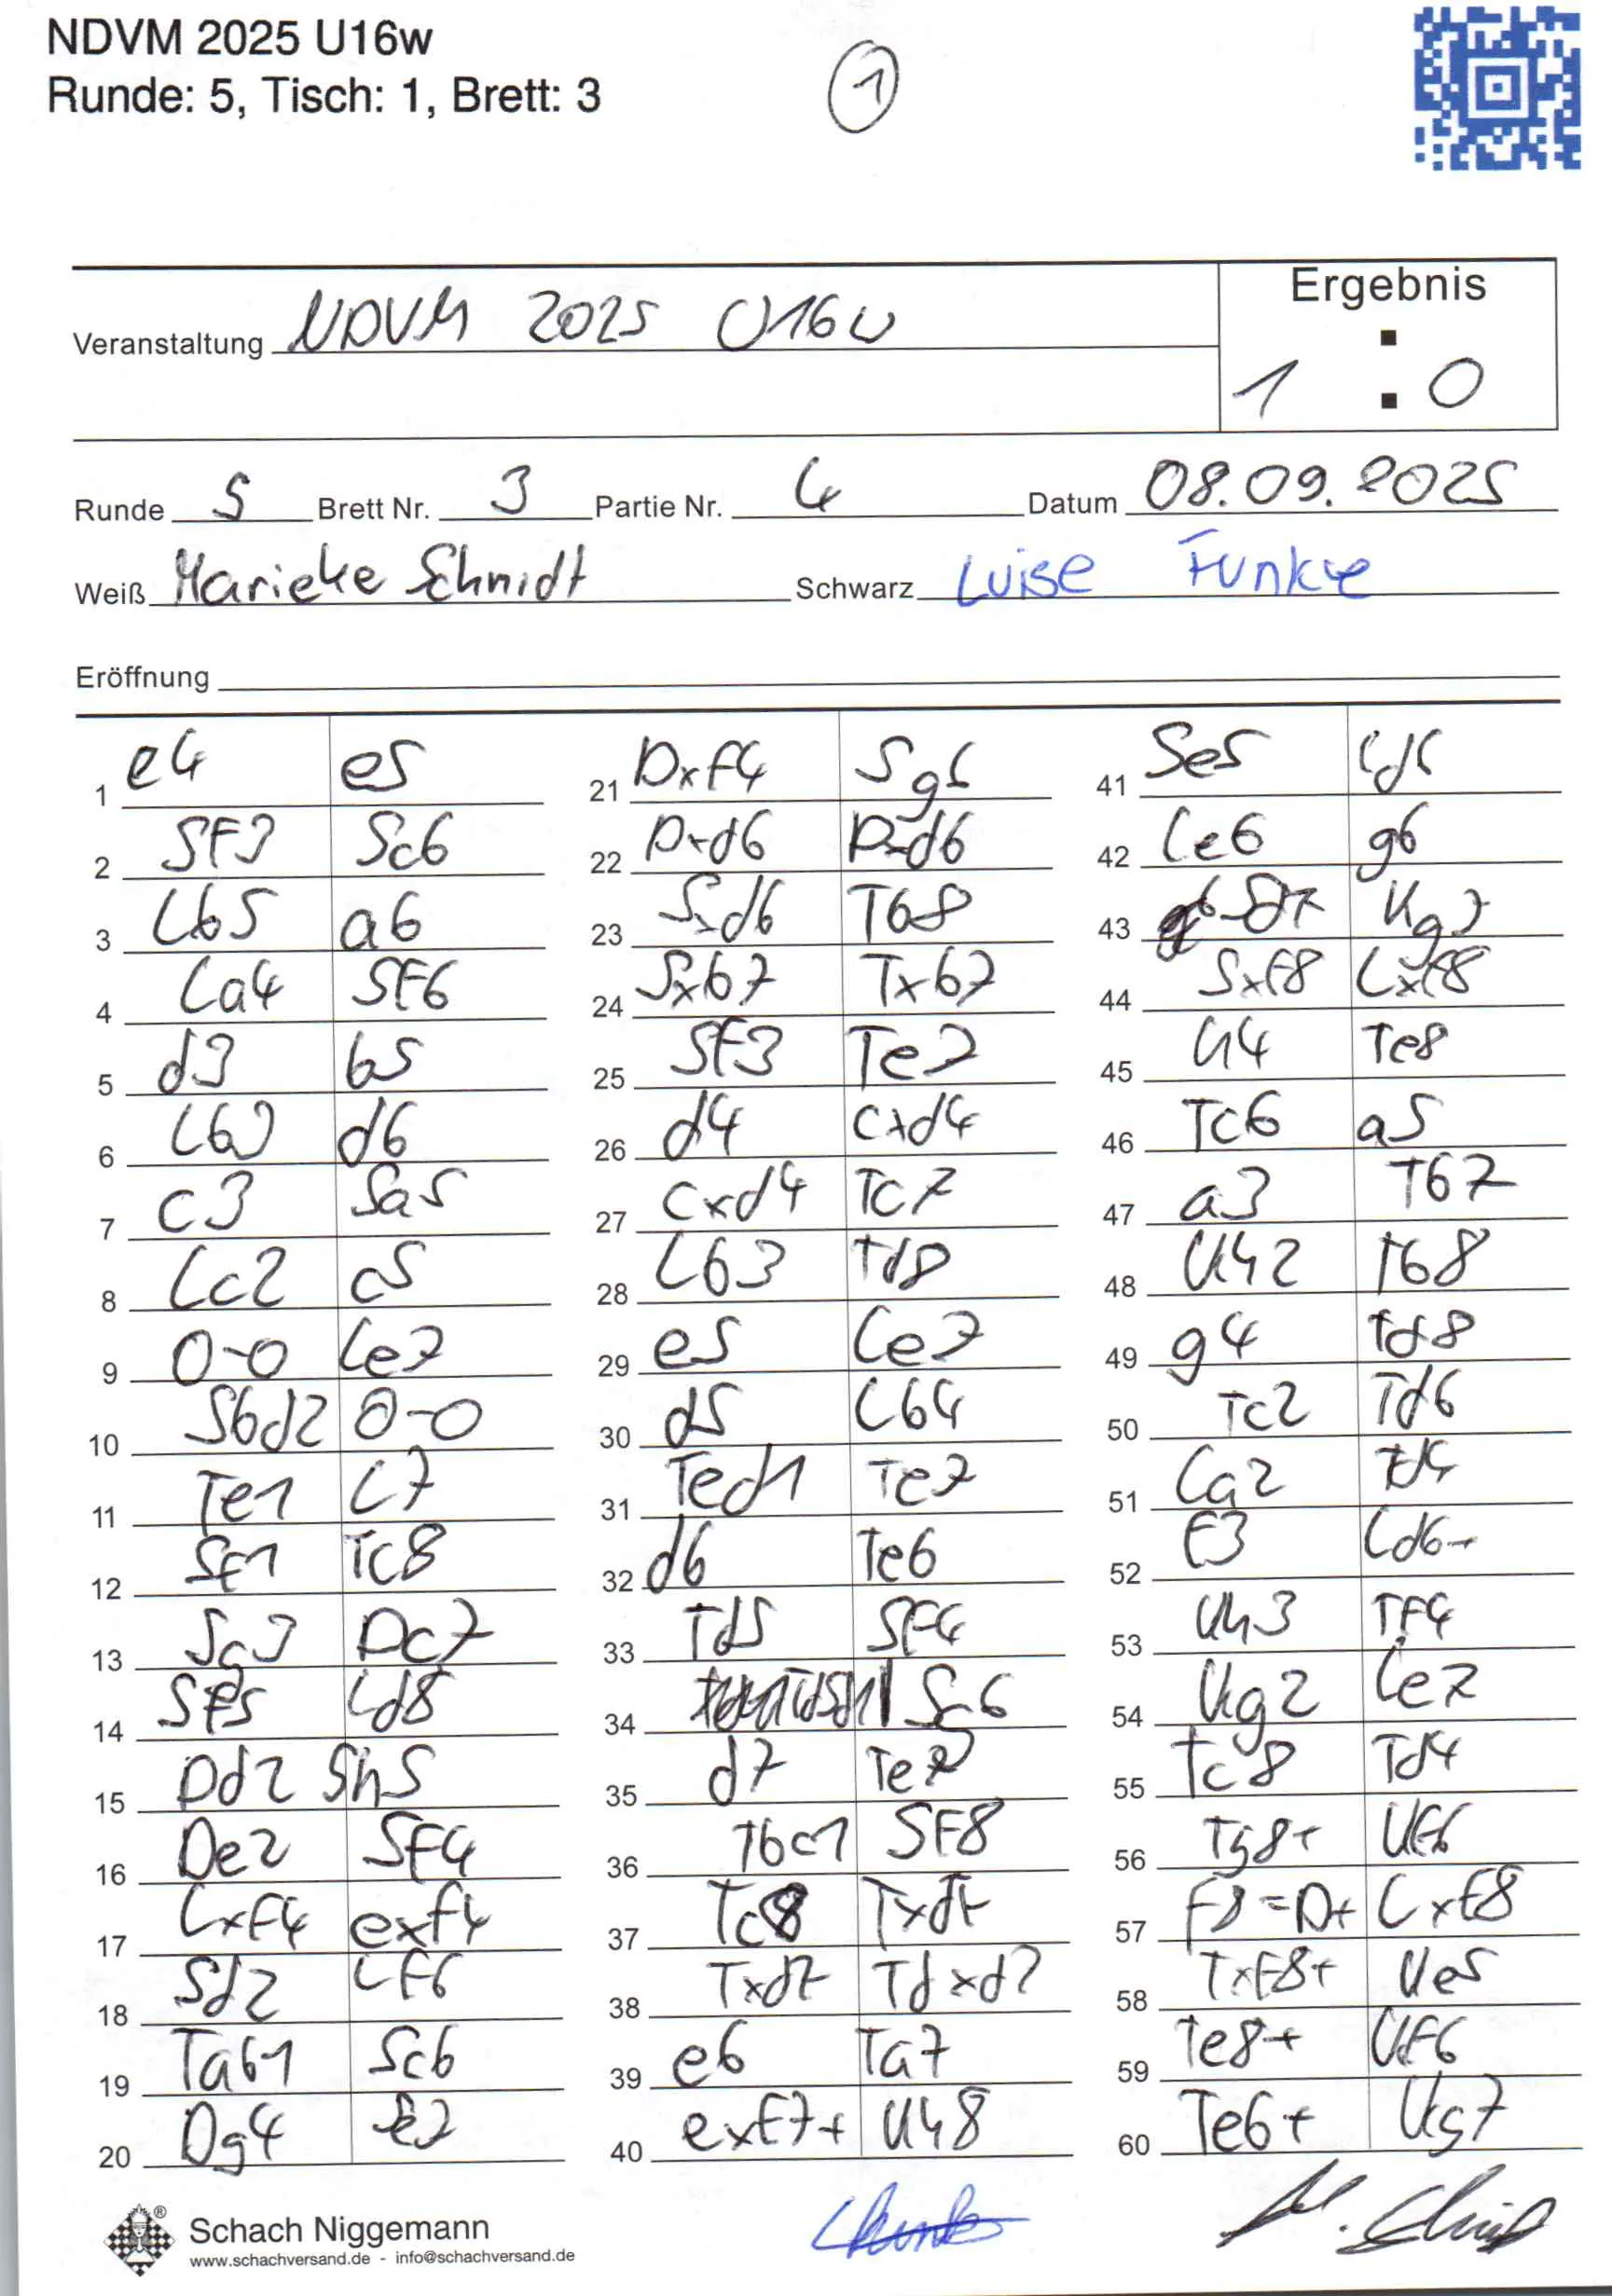 NDVM 2025 U16w
Runde: 5, Tisch: 1, Brett: 3
1
Ergebnis
Veranstaltung NDVM 2025 U16w
1 : 0
Runde 5 Brett Nr. 3 Partie Nr. 4 Datum 08.09.2025
Weiß Marieke Schmidt Schwarz Luise Funke
Eröffnung
1 e4 e5
2 SF3 Sc6
3 Lb5 a6
4 La4 SF6
5 d3 b5
6 Lb3 d6
7 c3 Sa5
8 Lc2 c5
9 0-0 Le7
10 Sbd2 0-0
11 Te1 L7
12 SF1 Tc8
13 Sg3 Dc7
14 SF5 Ld8
15 Dd2 Sh5
16 De2 SF4
17 LxF4 exf4
18 Sd2 LF6
19 Tab1 Sc6
20 Dg4 Se7
21 DxF4 Sg6
22 Dxd6 Dxd6
23 Sxd6 Tb8
24 Sxb7 Txb7
25 SF3 Te7
26 d4 cxd4
27 cxd4 Tc7
28 Lb3 Td8
29 e5 Le7
30 d5 Lb4
31 Ted1 Te7
32 d6 Te6
33 Td5 SF4
34 Sg6
35 d7 Te7
36 Tbc1 SF8
37 Tc8 Txd7
38 Txd7 Tdxd7
39 e6 Ta7
40 exF7+ Kh8
41 Se5 Ld6
42 Le6 g6
43 Sd7 Kg7
44 SxF8 LxF8
45 h4 Te8
46 Tc6 a5
47 a3 Tb7
48 Kh2 Tb8
49 g4 Td8
50 Tc2 Td6
51 La2 Td4
52 F3 Ld6+
53 Kh3 TF4
54 Kg2 Le7
55 Tc8 Td4
56 Tg8+ KF6
57 F8=D+ LxF8
58 TxF8+ Ke5
59 Te8+ KF6
60 Te6+ Kg7
Schach Niggemann
www.schachversand.de - info@schachversand.de